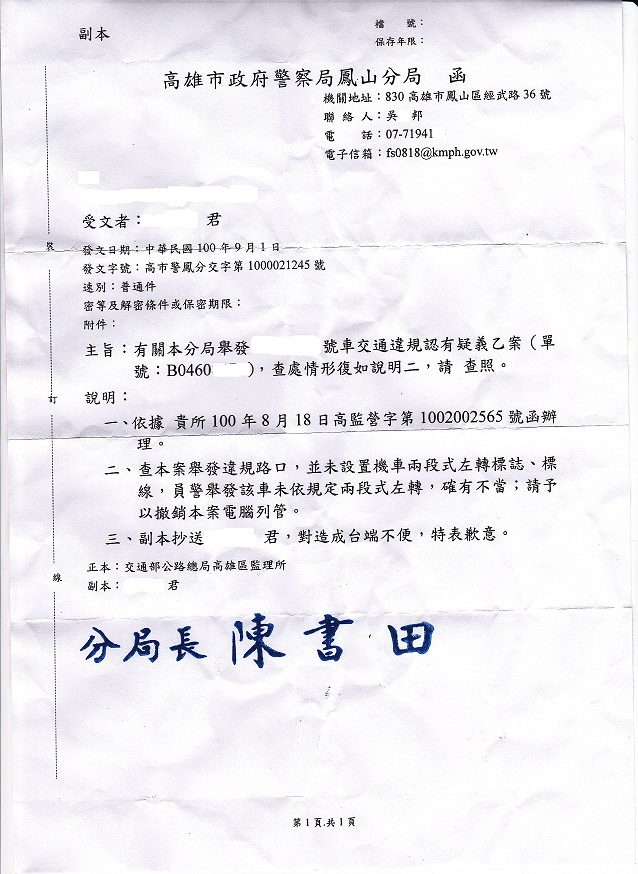 副本
檔　　號：
保存年限：
高雄市政府警察局鳳山分局　函
機關地址：830 高雄市鳳山區經武路 36 號
聯 絡 人：吳　邦
電　　話：07-71941
電子信箱：fs0818@kmph.gov.tw
受文者：　　　君
發文日期：中華民國 100 年 9 月 1 日
發文字號：高市警鳳分交字第 1000021245 號
速別：普通件
密等及解密條件或保密期限：
附件：
主旨：有關本分局舉發　　　號車交通違規認有疑義乙案（單
號：B0460　　），查處情形復如說明二，請　查照。
說明：
一、依據　貴所 100 年 8 月 18 日高監營字第 1002002565 號函辦
理。
二、查本案舉發違規路口，並未設置機車兩段式左轉標誌、標
線，員警舉發該車未依規定兩段式左轉，確有不當；請予
以撤銷本案電腦列管。
三、副本抄送　　　君，對造成台端不便，特表歉意。
正本：交通部公路總局高雄區監理所
副本：　　　君
分局長 陳書田
第 1 頁 共 1 頁
裝
訂
線